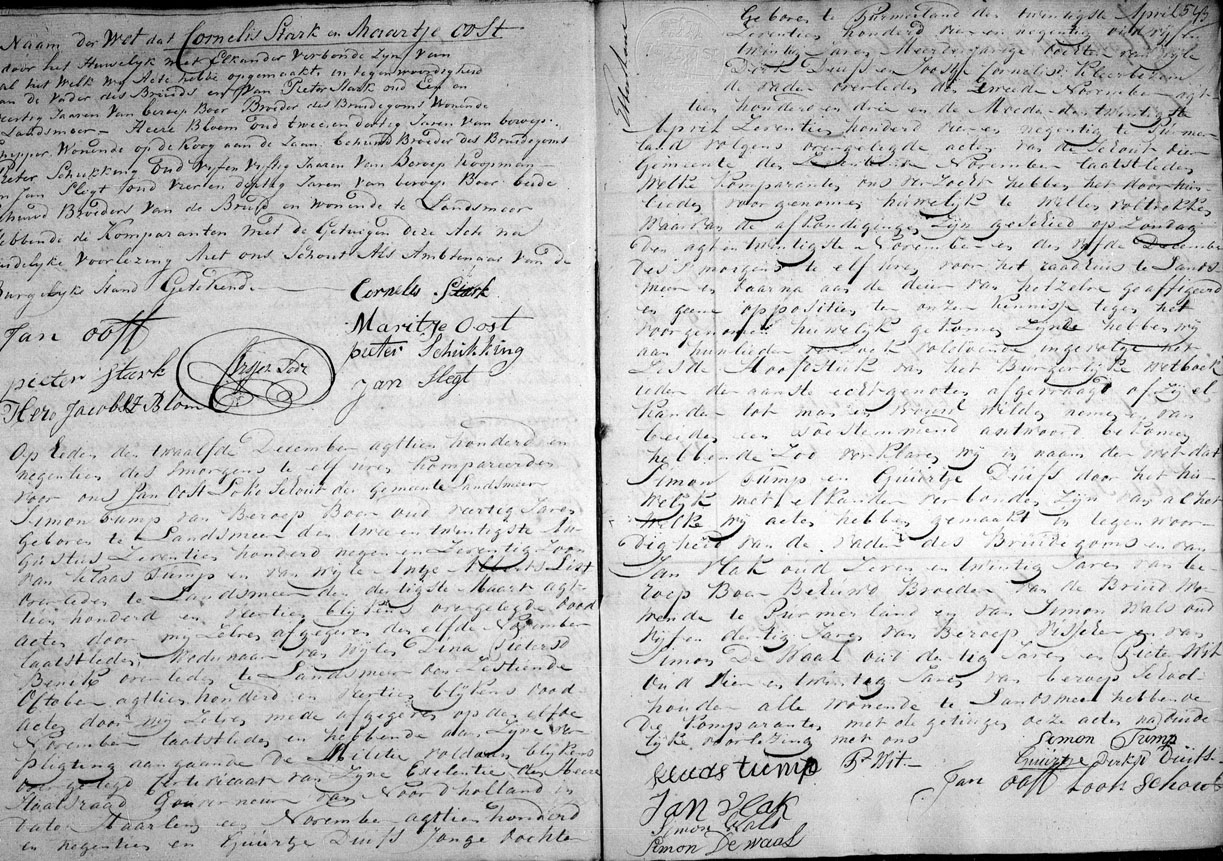 Naam der Wet dat Cornelis Stark en Maartje Oost
door het Huwelijk met Elkander Verbonde Zyn Van
al het Welk wy Acte hebbe opgemaakt, in tegenwoordigheid
van de Vader des Bruids en Van Pieter Stark oud Een en
Veertig Jaaren Van beroep Boer Broeder des Bruidegoms Wonende
Landsmeer Heere Bloem oud twee en dertig Jaren Van beroep
Wonende op de Koog aan de Zaan behuwd Broeder des Bruidegoms
Pieter Schukking Oud Vyf en Vyftig Jaaren Van Beroep Koopman
Jan Slegt oud Vier en dertig Jaren Van beroep Boer beide
behuwd Broeders Van de Bruyd en Wonende te Landsmeer
Hebbende de Komparanten met de Getuigen deze Acte na
duidelyke Voorlezing Met ons Schout Als Ambtenaar Van de
Burgelyke Stand Getekende
Cornelis Stark
Jan oost
Maritje Oost
pieter Schukking
pieter Stark
Jan Slegt
Hero Jacobsz Blom
Op heden den twaalfde December agttien honderd en
negentien des morgens te elf ures kompareerden
voor ons Jan Oost Schout der gemeente Landsmeer
Simon Tump van Beroep Boer oud veertig Jaren
geboren te Landsmeer den twee en twintigste Au
gustus Zeventien honderd negen en Zeventig Zoon
van Klaas Tump en van wyle Antje
overleden te Landsmeer den dertigste Maart agt
tien honderd en veertien blykens overgelegde dood
acte door my Zelve afgegeven den elfde November
laatstleden, Weduwnaar van wylen Dina Pieters
overleden te Landsmeer den Zestiende
October agttien honderd en veertien blykens dood
acte door my Zelve mede afgegeven op den elfde
November laatstleden en hebbende aan Zyne ver
pligting aangaande de Militie voldaan blykens
overgelegd Certificaat van Zyne Exelentie den Heere
Staatsraad Gouverneur van Noordholland in
dato Haarlem November agttien honderd
en negentien en Guurtje Duijfs Jonge dochter
543
Geboren te Purmerland den twintigste April
Zeventien honderd vier en negentig oud vyf en
twintig Jaren Meerderjarige dochter van wyle
Dirk Duijfs en Joosje Cornelisd
de vader overleden den Tweede November agt
tien honderd en drie en de Moeder den twintigste
April Zeventien honderd vier en negentig te Purmer
land volgens overgelegde acten van de Schout dier
Gemeente den November laatstleden
Welke Komparanten ons verzoekt hebben het door hun
lieden voorgenomen huwelyk te Willen voltrekken
Waarvan de afkondigingen Zyn geschied op Zondag
den agt en twintigste November en den vyfde December
des 's morgens te elf ures voor het raadhuis te Lands
meer en daarna aan de deur van hetzelve geaffigeerd
en geene oppositien te onzer kennisse tegen het
voorgenomen huwelyk gekomen Zynde hebben wy
aan hunlieden verzoek voldoende ingevolge het
Zesde Hoofdstuk van het Burgerlyke Wetboek
ieder der aanstaande echtgenoten afgevraagd of zy el
kander tot man en Vrouw wilde nemen en van
beiden een toestemmend antwoord bekomen
hebbende Zoo verklaren wy in naam der wet dat
Simon Tump en Guurtje Duijfs door het hu
welyk met elkander verbonden Zyn van al het
Welke wy acten hebben gemaakt in tegenwoor
digheid van de vader des Bruidegoms en van
Jan Vlak oud Zeven en twintig Jaren van be
roep Boer Behuwd Broeder van de Bruid wo
nende te Purmerland en van Simon Wals oud
vyf en dertig Jaren van Beroep Visscher en van
Simon De Waal oud dertig Jaren en Pieter Wit
Oud Vier en twintig Jaren van beroep School
houder alle Wonende te Landsmeer hebbende
de Komparanten met de getuigen deze acte na duide
lyke voorlezing met ons
Simon Tump
klaas tump
P. Wit
Guurtje Dirks Duijfs
Jan oost Schout
Jan Vlak
Simon Wals
Simon De waal